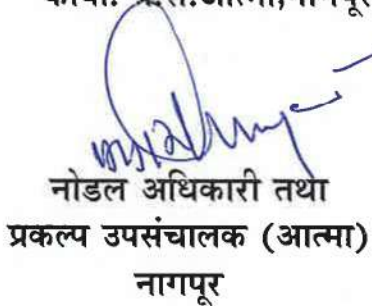 नोडल अधिकारी तथा
प्रकल्प उपसंचालक (आत्मा)
नागपूर